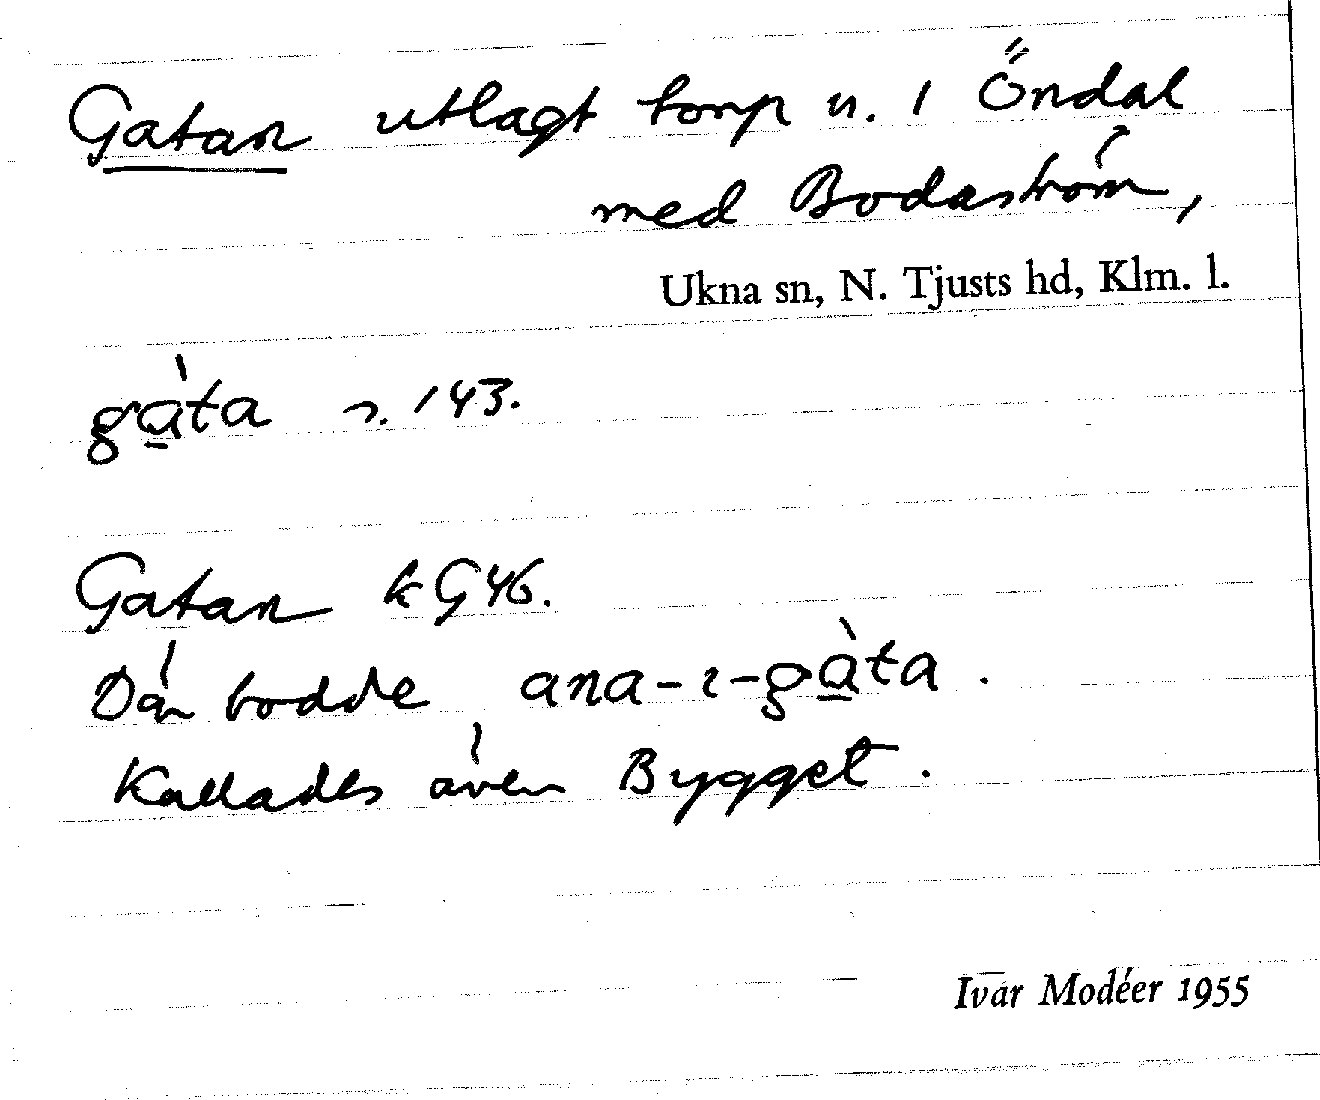 Gatan utlagt torp u. 1 Öndal
med Bodaström,
Ukna sn, N. Tjusts hd, Klm. l.
gàta s. 143.
Gatan k G 46.
Där bodde ana-ı-gàta.
Kallades även Bygget.
Ivar Modéer 1955